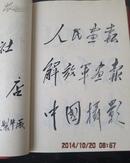 人民画报
解放军画报
中国摄影
社
店
2014/10/20 08:57